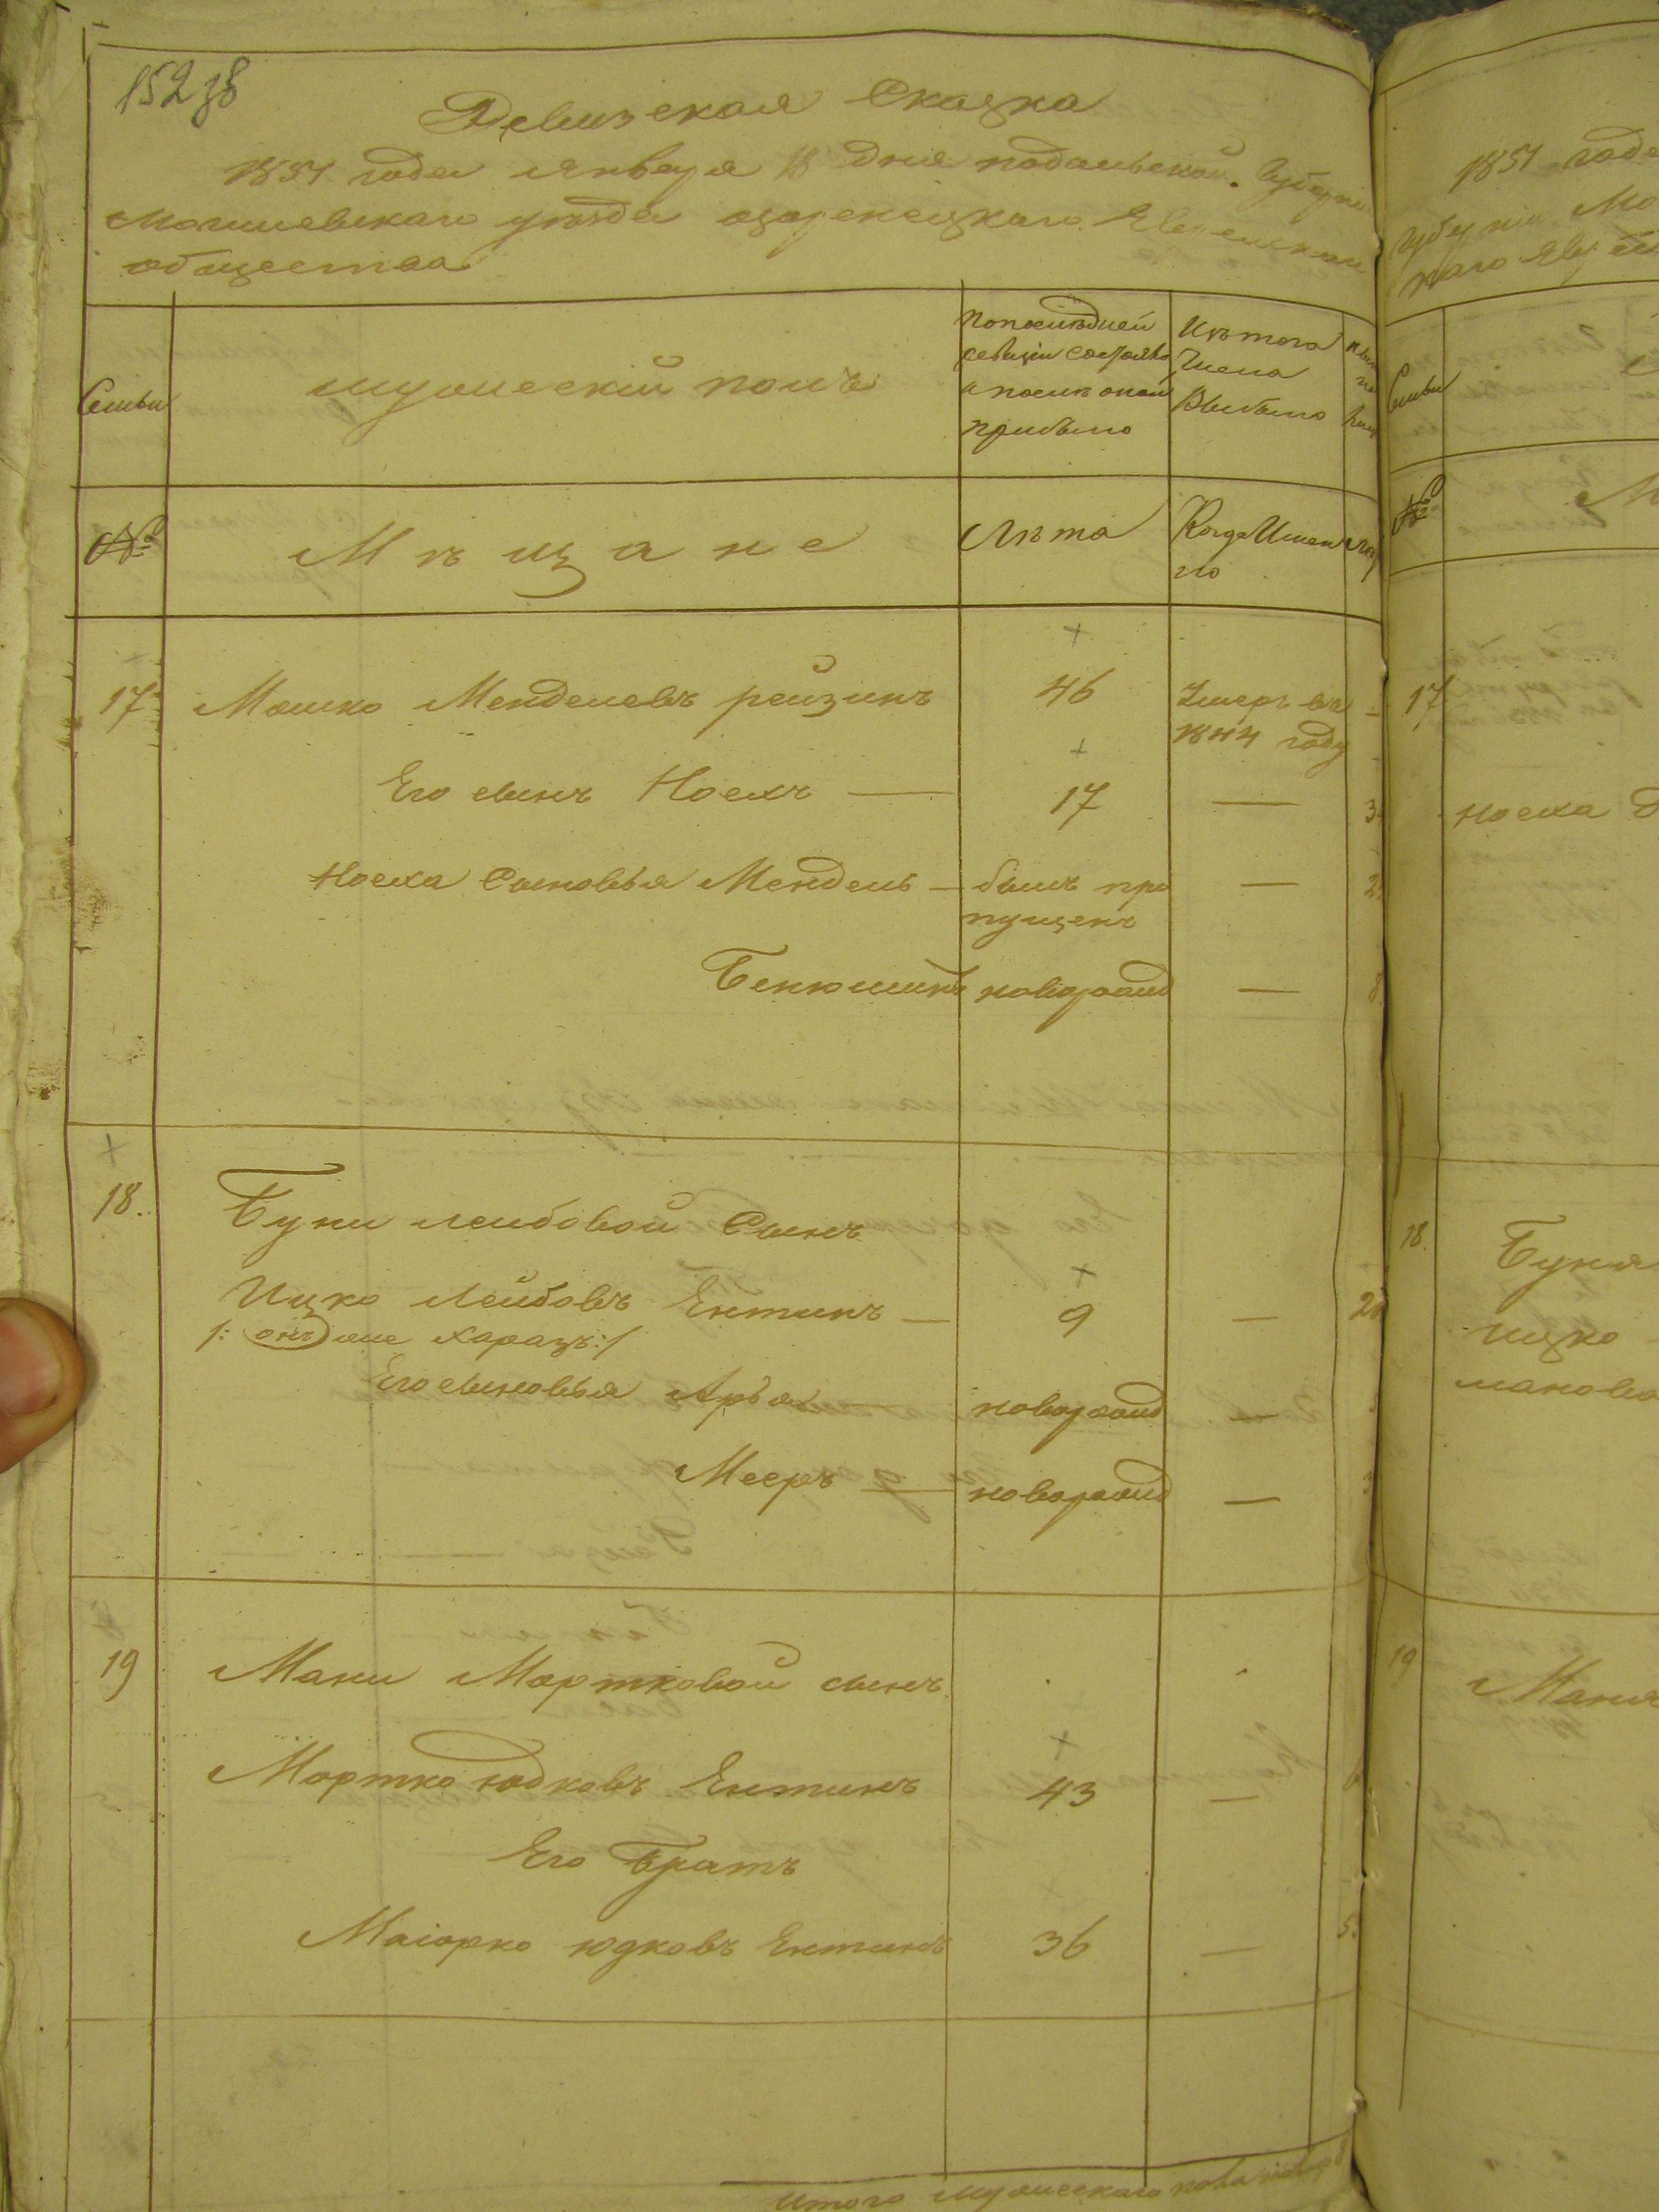 152 зв
Ревизская Сказка
1851 года января 18 дня подольской Губерніи
Могилевскаго уѣзда озаренецкаго Еврейскаго
общества
Семьи
мужескій полъ
По послѣдней
ревизіи состояло
и послѣ оной
прибыло
Изъ того
Числа
Выбыло
№
Мѣщане
Лѣта
Когда Имен
но
17
Мошко Менделевъ рейзинъ
46
Умеръ въ
1844 году
Его сынъ Ноехъ —
17
—
Ноеха Сыновья Мендель —
былъ про
пущенъ
—
новорожд
—
18.
Буни лейбовой Сынъ
Ицко Лейбовъ Ентинъ —
9
—
/: онъ же Харазъ :/
Его сыновья Арья
новорожд
—
Мееръ —
новорожд
—
19
Мани Мортковой сынъ
Мортко юдковъ Ентинъ
43
—
Его Братъ
Маіорко юдковъ Ентинъ
36
—
Итого мужескаго пола
1851 года
Губерніи Мо
Семьи
№
17
Ноеха
18.
Буня
ицко
19
Маня